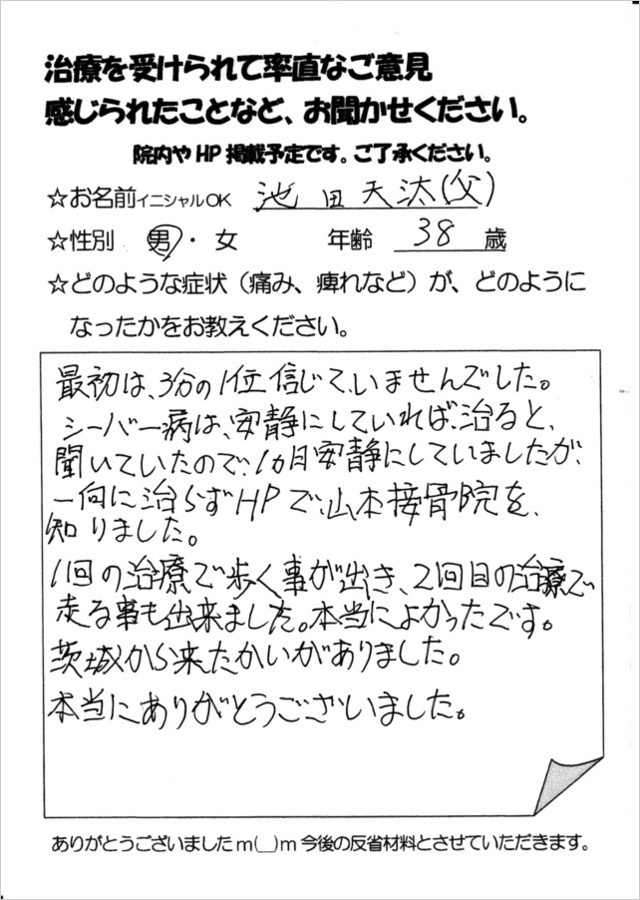 治療を受けられて率直なご意見
感じられたことなど、お聞かせください。
院内やHP掲載予定です。ご了承ください。
☆お名前イニシャルOK 池田天汰(父)
☆性別 男・女 年齢 38 歳
☆どのような症状（痛み、痺れなど）が、どのように
なったかをお教えください。
最初は、3分の1位信じていませんでした。
シーバー病は、安静にしていれば、治ると、
聞いていたので、1カ月安静にしていましたが、
一向に治らずHPで、山本接骨院を、
知りました。
1回の治療で歩く事が出き、2回目の治療で
走る事も出来ました。本当によかったです。
茨城から来たかいがありました。
本当にありがとうございました。
ありがとうございましたm(__)m今後の反省材料とさせていただきます。